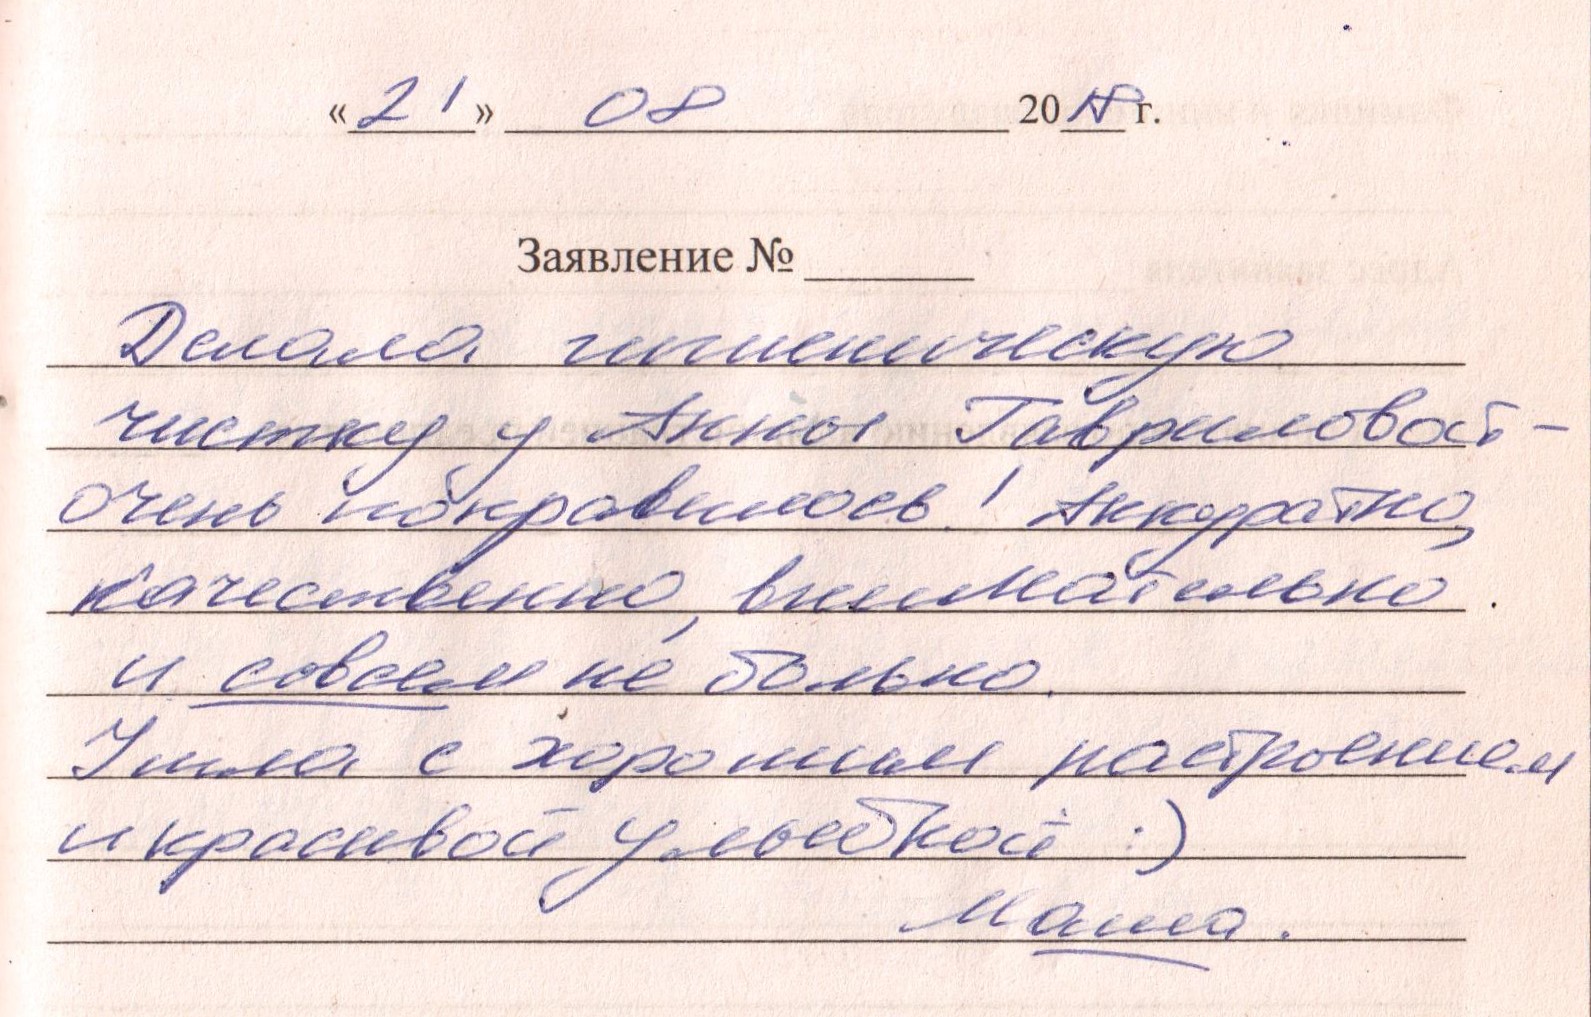 «21» 08 2018 г.
Заявление № ____
Делала гигиеническую
чистку у Анны Гавриловой –
очень понравилось! Аккуратно,
качественно, внимательно
и совсем не больно.
Ушла с хорошим настроением
и красивой улыбкой :)
Маша.